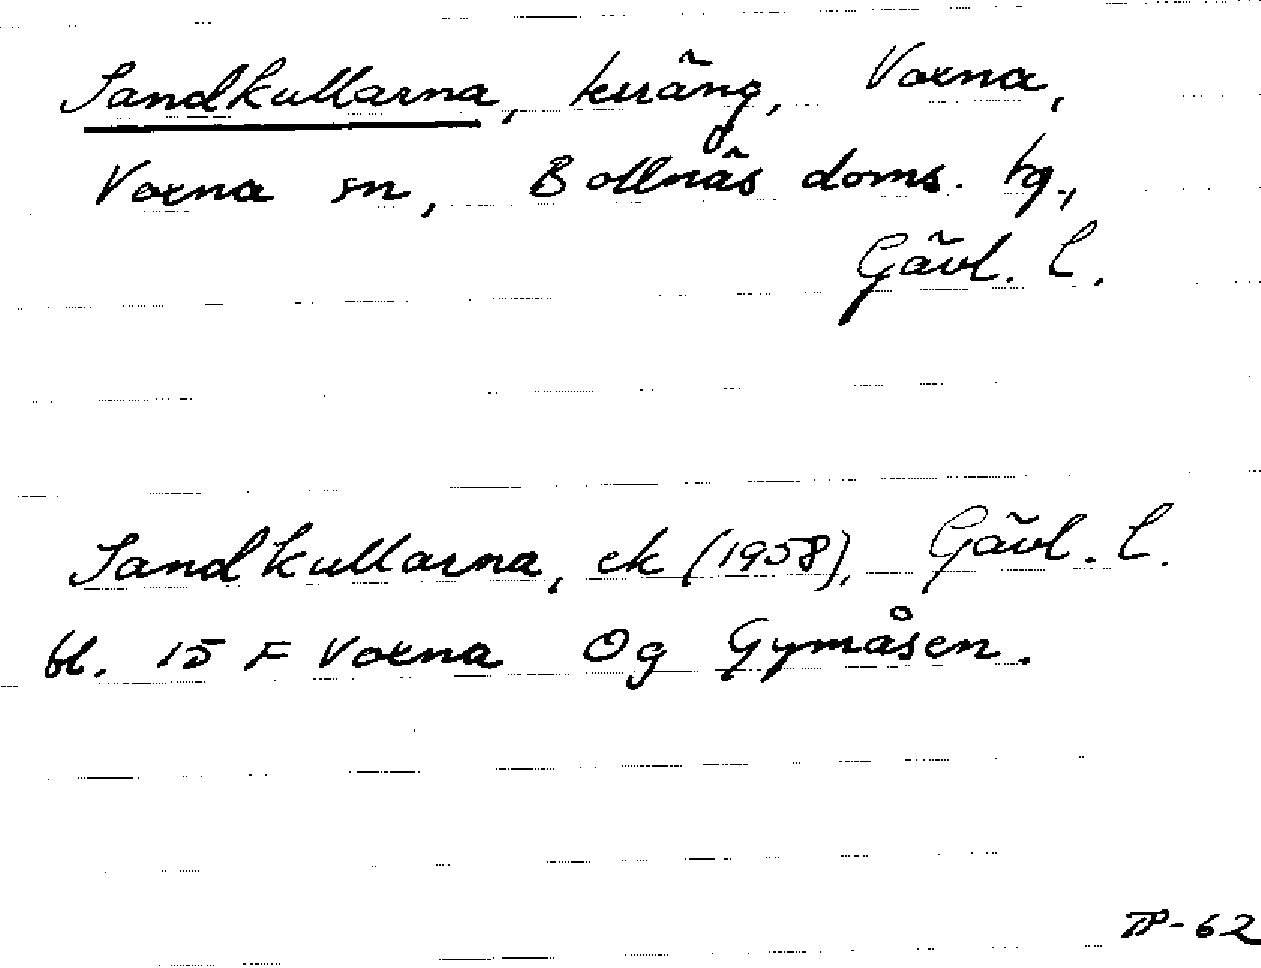 Sandkullarna, kuräng, Voxna,
Voxna sn, Bollnäs doms. hg.,
Gävl. l.
Sandkullarna, ek (1958), Gävl. l.
bl. 15 F Voxna Og Gymåsen.
TP-62